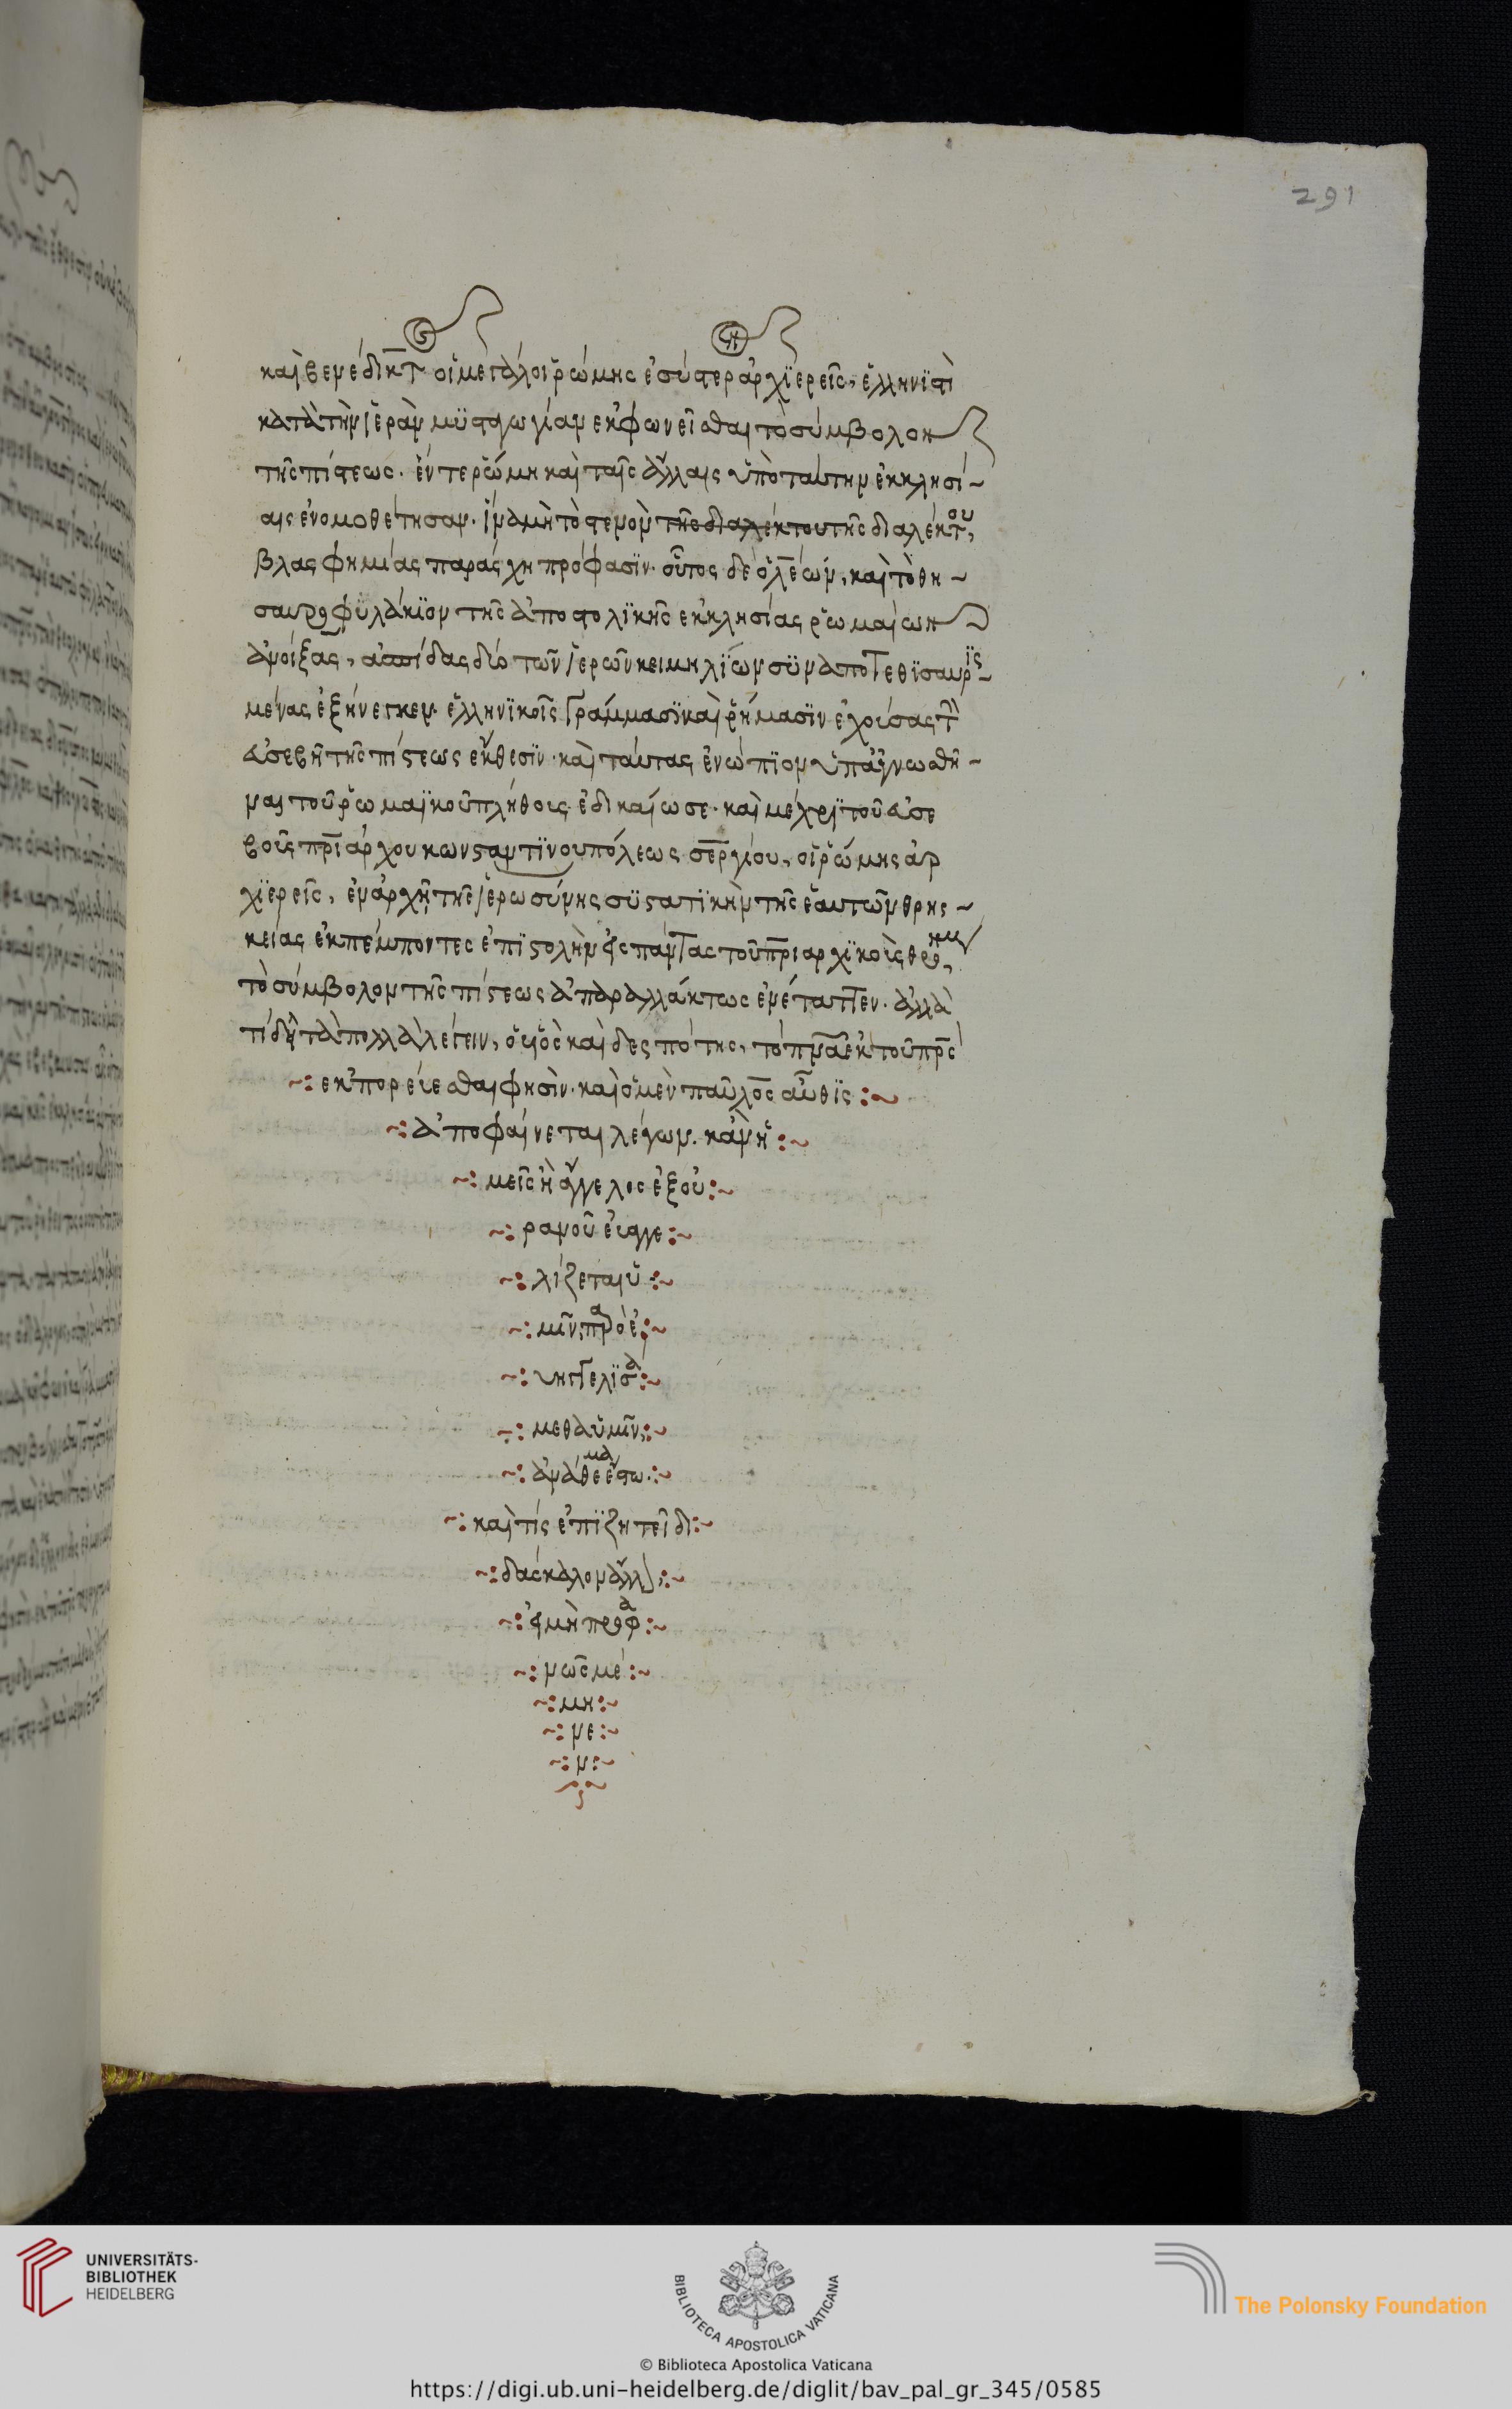 291
καὶ βενέδικτ οἱ μεγάλοι ῥώμης ἐσύστερ ἀρχϊερεῖς, ἑλληνϊστὶ
κατὰ τὴν ἱερὰν μϋσταγωγίαν ἐκφωνεῖσθαι τὸ σύμβολον
τῆς πίστεως. ἔν τε ῥώμη καὶ ταῖς ἄλλαις ὑπὸ ταύτην ἐκκλησί
αις ἐνομοθέτησαν. ἵνα μὴ τὸ στενὸν τῆς διαλέκτου τῆς διαλέκτου,
βλασφημίας παράσχη πρόφασϊν. οὗτος δὲ ὁ λέων, καὶ τὸ θη
σαυροφϋλάκϊον τῆς ἀποστολϊκῆς ἐκκλησίας ῥωμαίων
ἀνοίξας, ἀσπίδας δύο τῶν ἱερῶν κειμηλΐων σϋναποτεθϊσαυρϊς
μένας ἐξήνεγκεν ἑλληνϊκοῖς γράμμασϊ καὶ ῥήμασϊν ἐχούσας τὴν
ἀσεβῆ τῆς πίστεως ἔκθεσϊν. καὶ ταύτας ἐνώπϊον ὑπαγνωσθῆ
ναι τοῦ ῥωμαϊκοῦ πλήθους ἐδικαίωσε. καὶ μέχρϊ τοῦ ἀσε
βοῦς πρϊάρχου κωνσταντϊνουπόλεως σεργίου, οἱ ῥώμης ἀρ
χϊερεῖς, ἐν ἀρχῇ τῆς ἱερωσύνης σϋστατϊκὴν τῆς ἑαυτῶν θρησ
κείας ἐκπέμποντες ἐπϊστολὴν εἰς πάντας τοὺς πριαρχϊκοὺς θρο,
τὸ σύμβολον τῆς πίστεως ἀπαραλλάκτως ἐνέταττεν. ἀλλὰ
τί δεῖ τὰ πολλὰ λέγειν, ὁ υἱὸς καὶ δεσπότης, τὸ πνα ἐκ τοῦ πρς
~: ἐκπορεύεσθαι φησὶν. καὶ ὁ μὲν παῦλος αὖθϊς :~
~: ἀποφαίνεται λέγων. κἂν ἡ :~
~: μεῖς ἢ ἄγγελος ἐξ οὐ :~
~: ρανοῦ εὐαγγε :~
~: λίζεται ὑ :~
~: μῖν, παρ ὃ εὐ :~
~: ηγγελϊσά :~
~: μεθα ὑμῖν, :~
~: ἀνάθεμα ἔστω. :~
~: καὶ τίς ἐπϊζητεῖ δι :~
~: δάσκαλον ἄλλ, :~
~: εἰ μὴ προφα :~
~: νῶς με :~
~: μη :~
~: νε :~
~: ν :~
UNIVERSITÄTS-
BIBLIOTHEK
HEIDELBERG
BIBLIOTECA APOSTOLICA VATICANA
The Polonsky Foundation
© Biblioteca Apostolica Vaticana
https://digi.ub.uni-heidelberg.de/diglit/bav_pal_gr_345/0585